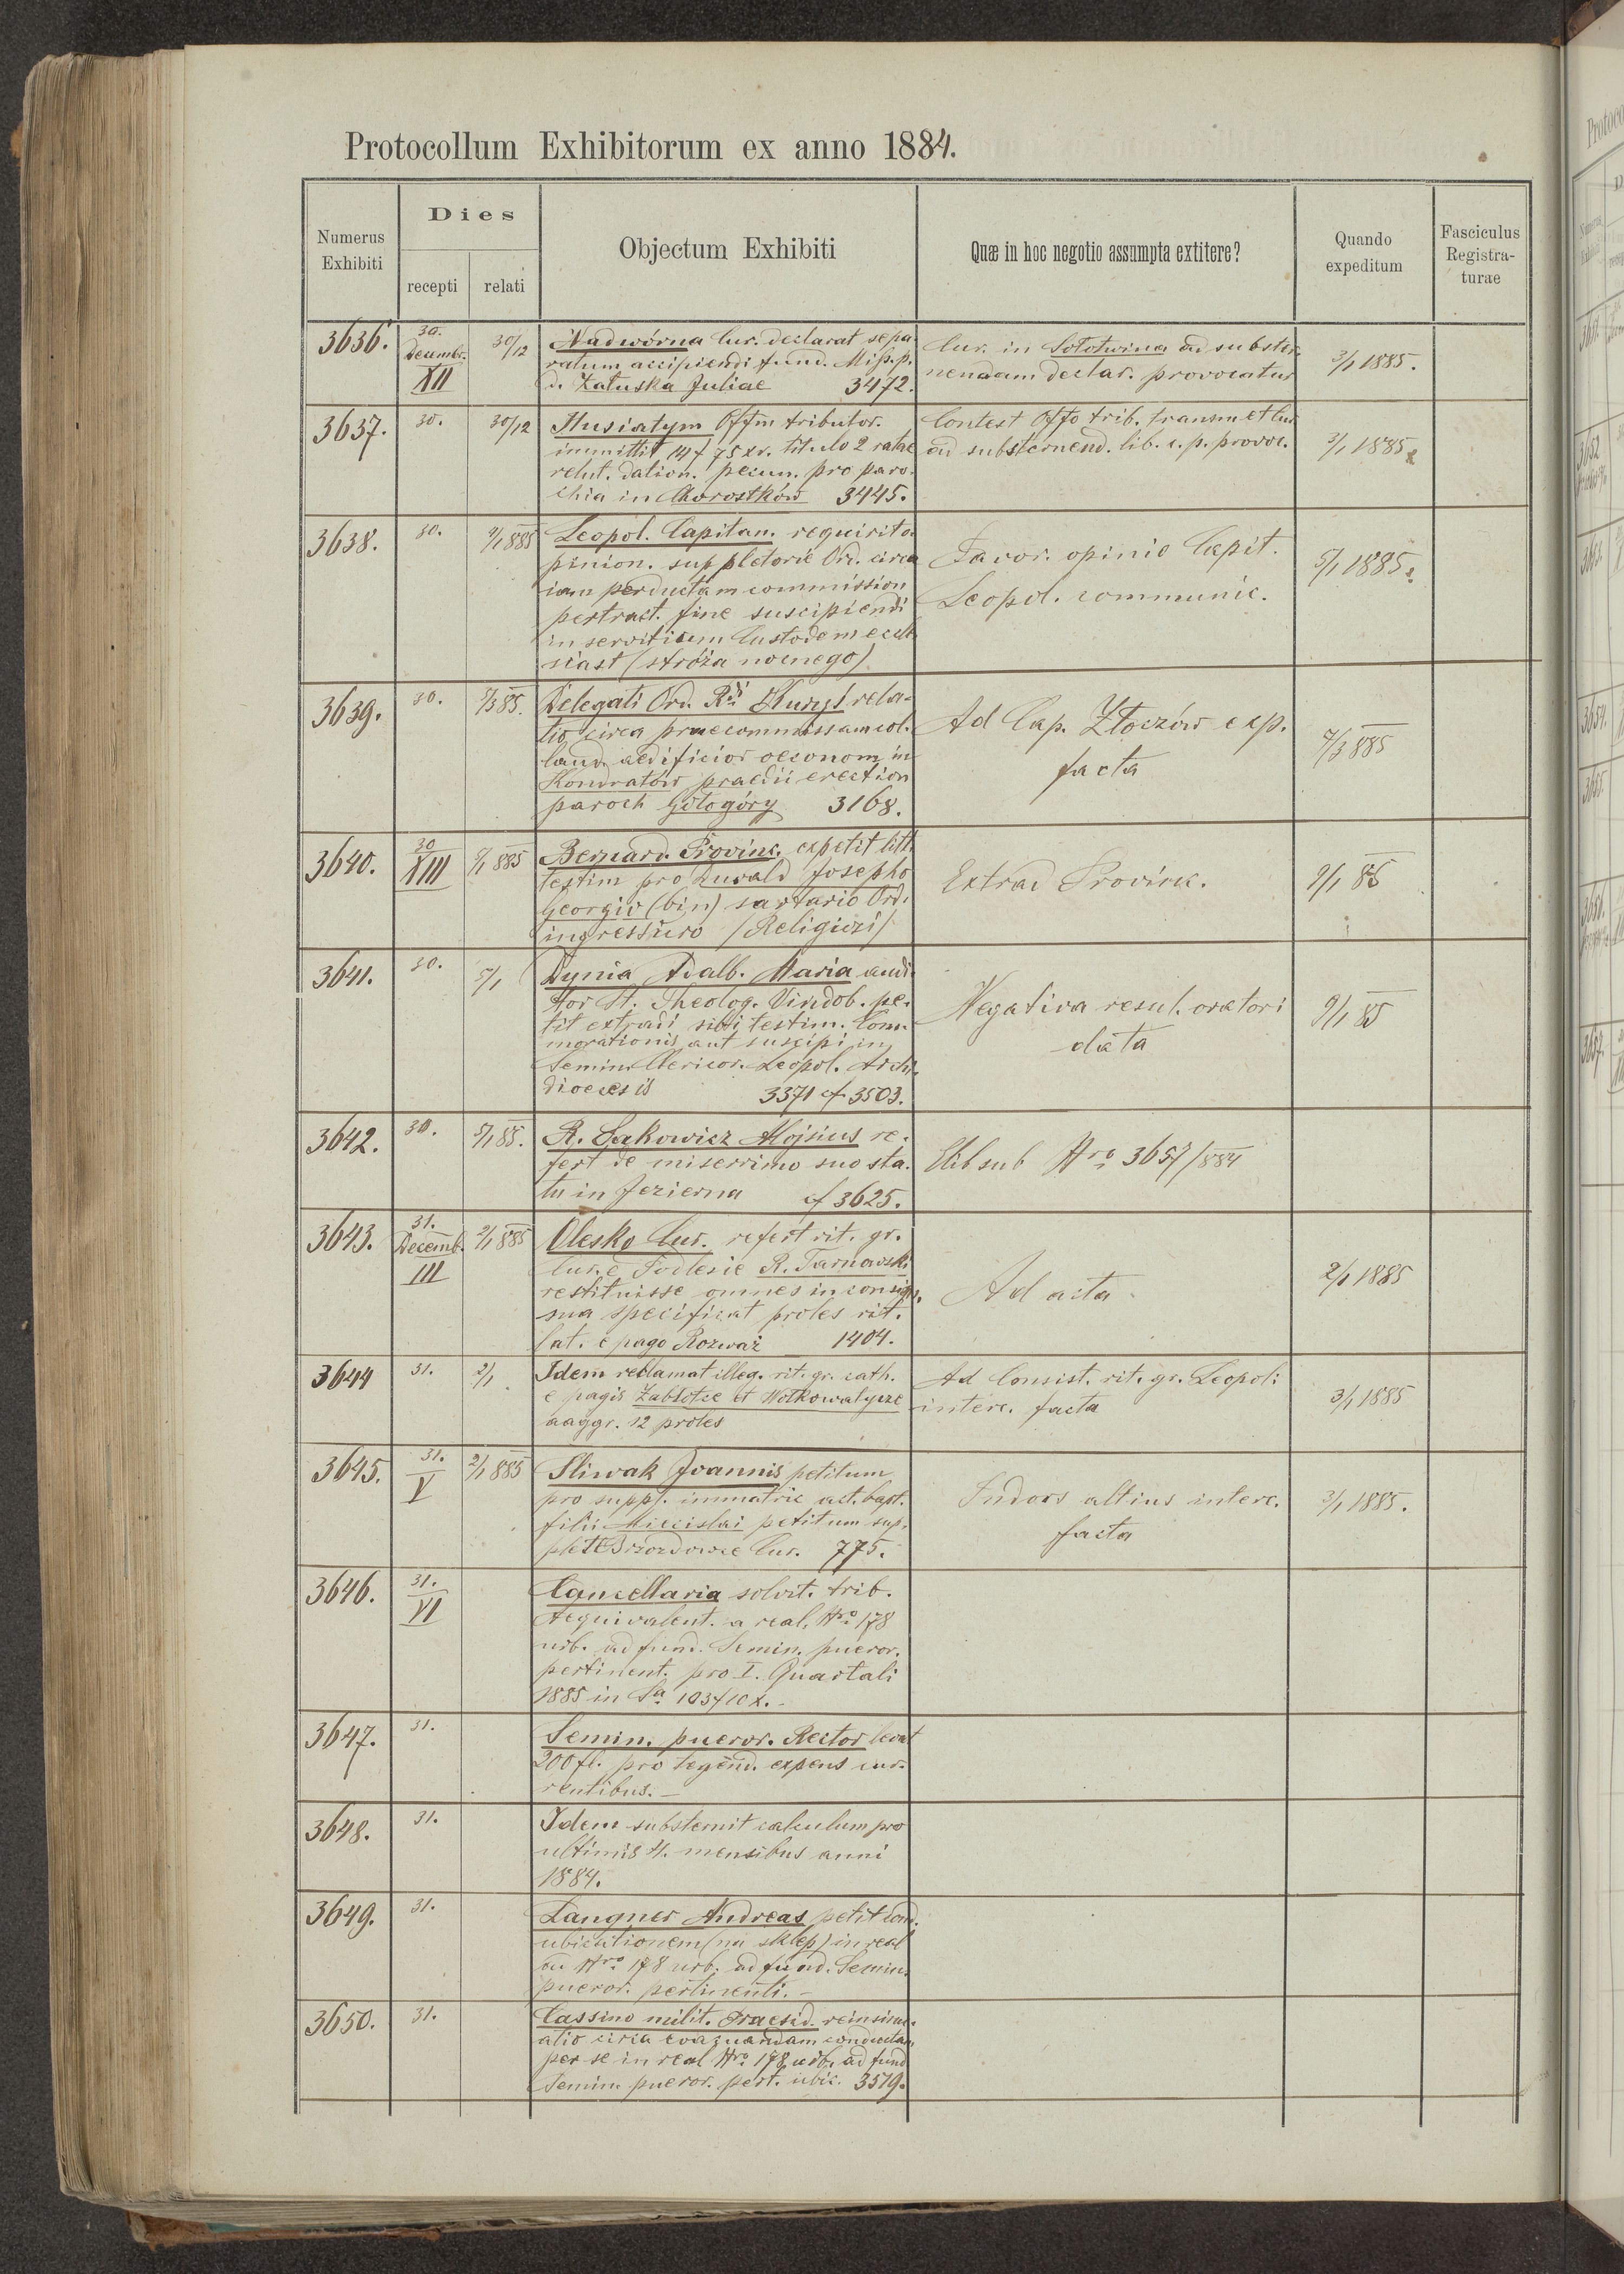 Protocollum Exhibitorum ex anno 1884.
Numerus Exhibiti
Dies
recepti
relati
Objectum Exhibiti
Quæ in hoc negotio assumpta extitere?
Quando expeditum
Fasciculus Registra-turae
3636.
30. Decembr. XII
30/12
Nadwórna Cur. declarat sepa-
ratum accipiendi fund. Miss. p.
d. Załuska Juliae 3472.
Cur. in Sołotwina ad subster
nendam declar. provocatur
3/1 1885.
3637.
30.
30/12
Husiatyn Offm tributor.
immittit 14f 75 xr. titulo 2 ratae
relut. dation. pecun. pro paro-
chia in Chorostków 3445.
Contest Offo trib. transm et Cur
ad substernend. lib. c. p. provoc.
3/1 1885
3638.
30.
2/1 885
Leopol. Capitan. requirit o-
pinion. suppletorie Ord. circa
iam perductam commission
pertract. fine suscipiendi
in servitium Custodem eccle
siast (stróża nocnego)
Favor. opinio Capit.
Leopol. communic.
5/1 1885
3639.
30.
5/3 85.
Delegati Ord. Rdi Kuryś rela-
tio circa praecommissam col-
laud. aedificior oeconom in
Kondratów praedii erection
paroch Gołogóry 3168.
Ad Cap. Złoczów exp.
facta
7/3 885
3640.
30 XIII
5/1 885
Bernard. Provinc. expetit litt
testim pro Zuwald Josepho
Georgio (bin) sartario Ord.
ingressuro /Religiosi/
Extrad Provinc.
9/1 85
3641.
30.
5/1
Dynia Adalb. Maria audi-
tor St. Theolog. Vindob. pe-
tit extradi sibi testim. Com-
morationis aut suscipi in
Semin Clericor. Leopol. Archi-
dioecesis 3371 cf 3503.
Negativa resul. oratori
data
9/1 85
3642.
30.
5/1 85.
R. Sakowicz Alojsius re-
fert de miserrimo suo sta-
tu in Jezierna cf 3625.
Elib sub Nro 3657/884
3643.
31. Decemb. III
2/1 885
Olesko Cur. refert rit. gr.
Cur. e Podlesie R. Tarnawski
restituisse omnes in consig-
sua specificat proles rit.
lat. e pago Rozważ 1404.
Ad acta
2/1 1885
3644
31.
2/1
Idem reclamat illeg. rit. gr. cath.
e pagis Zabłotce et Wołkowatycze
aaggr. 12 proles
Ad Consist. rit. gr. Leopol:
interc. facta
3/1 1885
3645.
31. V
2/1 885
Sliwak Joannis petitum
pro suppl. immatric act. bapt.
filii Miecislai petitum sup-
plet Brzozdowce Cur. 775.
Indors altius interc.
facta
3/1 1885.
3646.
31. VI
Cancellaria solvit. trib.
Aequivalent. a real. Nro 178
urb. ad fund. Semin. pueror.
pertinent. pro I. Quartali
1885 in Sa 103f 10x.-
3647.
31.
Semin. pueror. Rector levat
200 fl. pro tegend. expens cur-
rentibus.-
3648.
31.
Idem substernit calculum pro
ultimis 4. mensibus anni
1884.
3649.
31.
Langner Andreas petit cond.
ubicationem (na sklep) in real
Nro 178 urb. ad fund. Semin.
pueror. pertinenti.-
3650.
31.
Cassino milit. Praesid. reinsinu-
atio circa evacuandam conductam
per se in real Nro 178 urb. ad fund
Semin. pueror. pert. ubic. 3519.